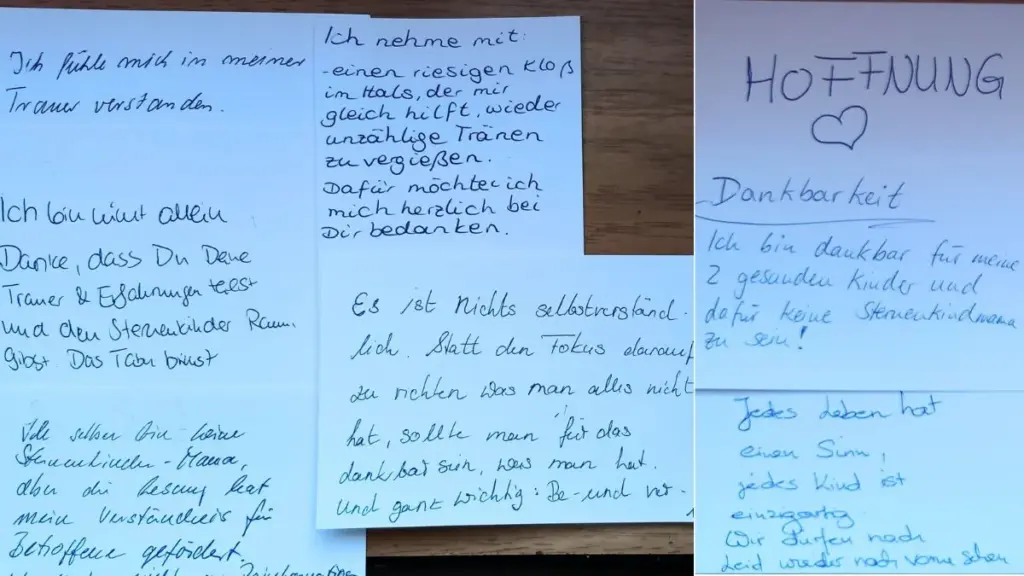 Ich fühle mich in meiner
Trauer verstanden.
Ich bin nicht allein
Danke, dass Du Deine
Trauer & Erfahrungen teilst
und den Sternenkinder Raum
gibst. Das Tabu brichst
Ich selber bin keine
Sternenkinder-Mama,
aber die Lesung hat
mein Verständnis für
Betroffene gefördert.
Ich nehme mit:
-einen riesigen Kloß
im Hals, der mir
gleich hilft, wieder
unzählige Tränen
zu vergießen.
Dafür möchte ich
mich herzlich bei
Dir bedanken.
Es ist Nichts selbstverständ-
lich. Statt den Fokus darauf
zu richten was man alles nicht
hat, sollte man für das
dankbar sein, was man hat.
Und ganz wichtig: Be- und ver-
HOFFNUNG
Dankbarkeit
Ich bin dankbar für meine
2 gesunden Kinder und
dafür keine Sternenkindmama
zu sein!
Jedes Leben hat
einen Sinn,
jedes Kind ist
einzigartig
Wir dürfen nach
Leid wieder nach vorne sehen